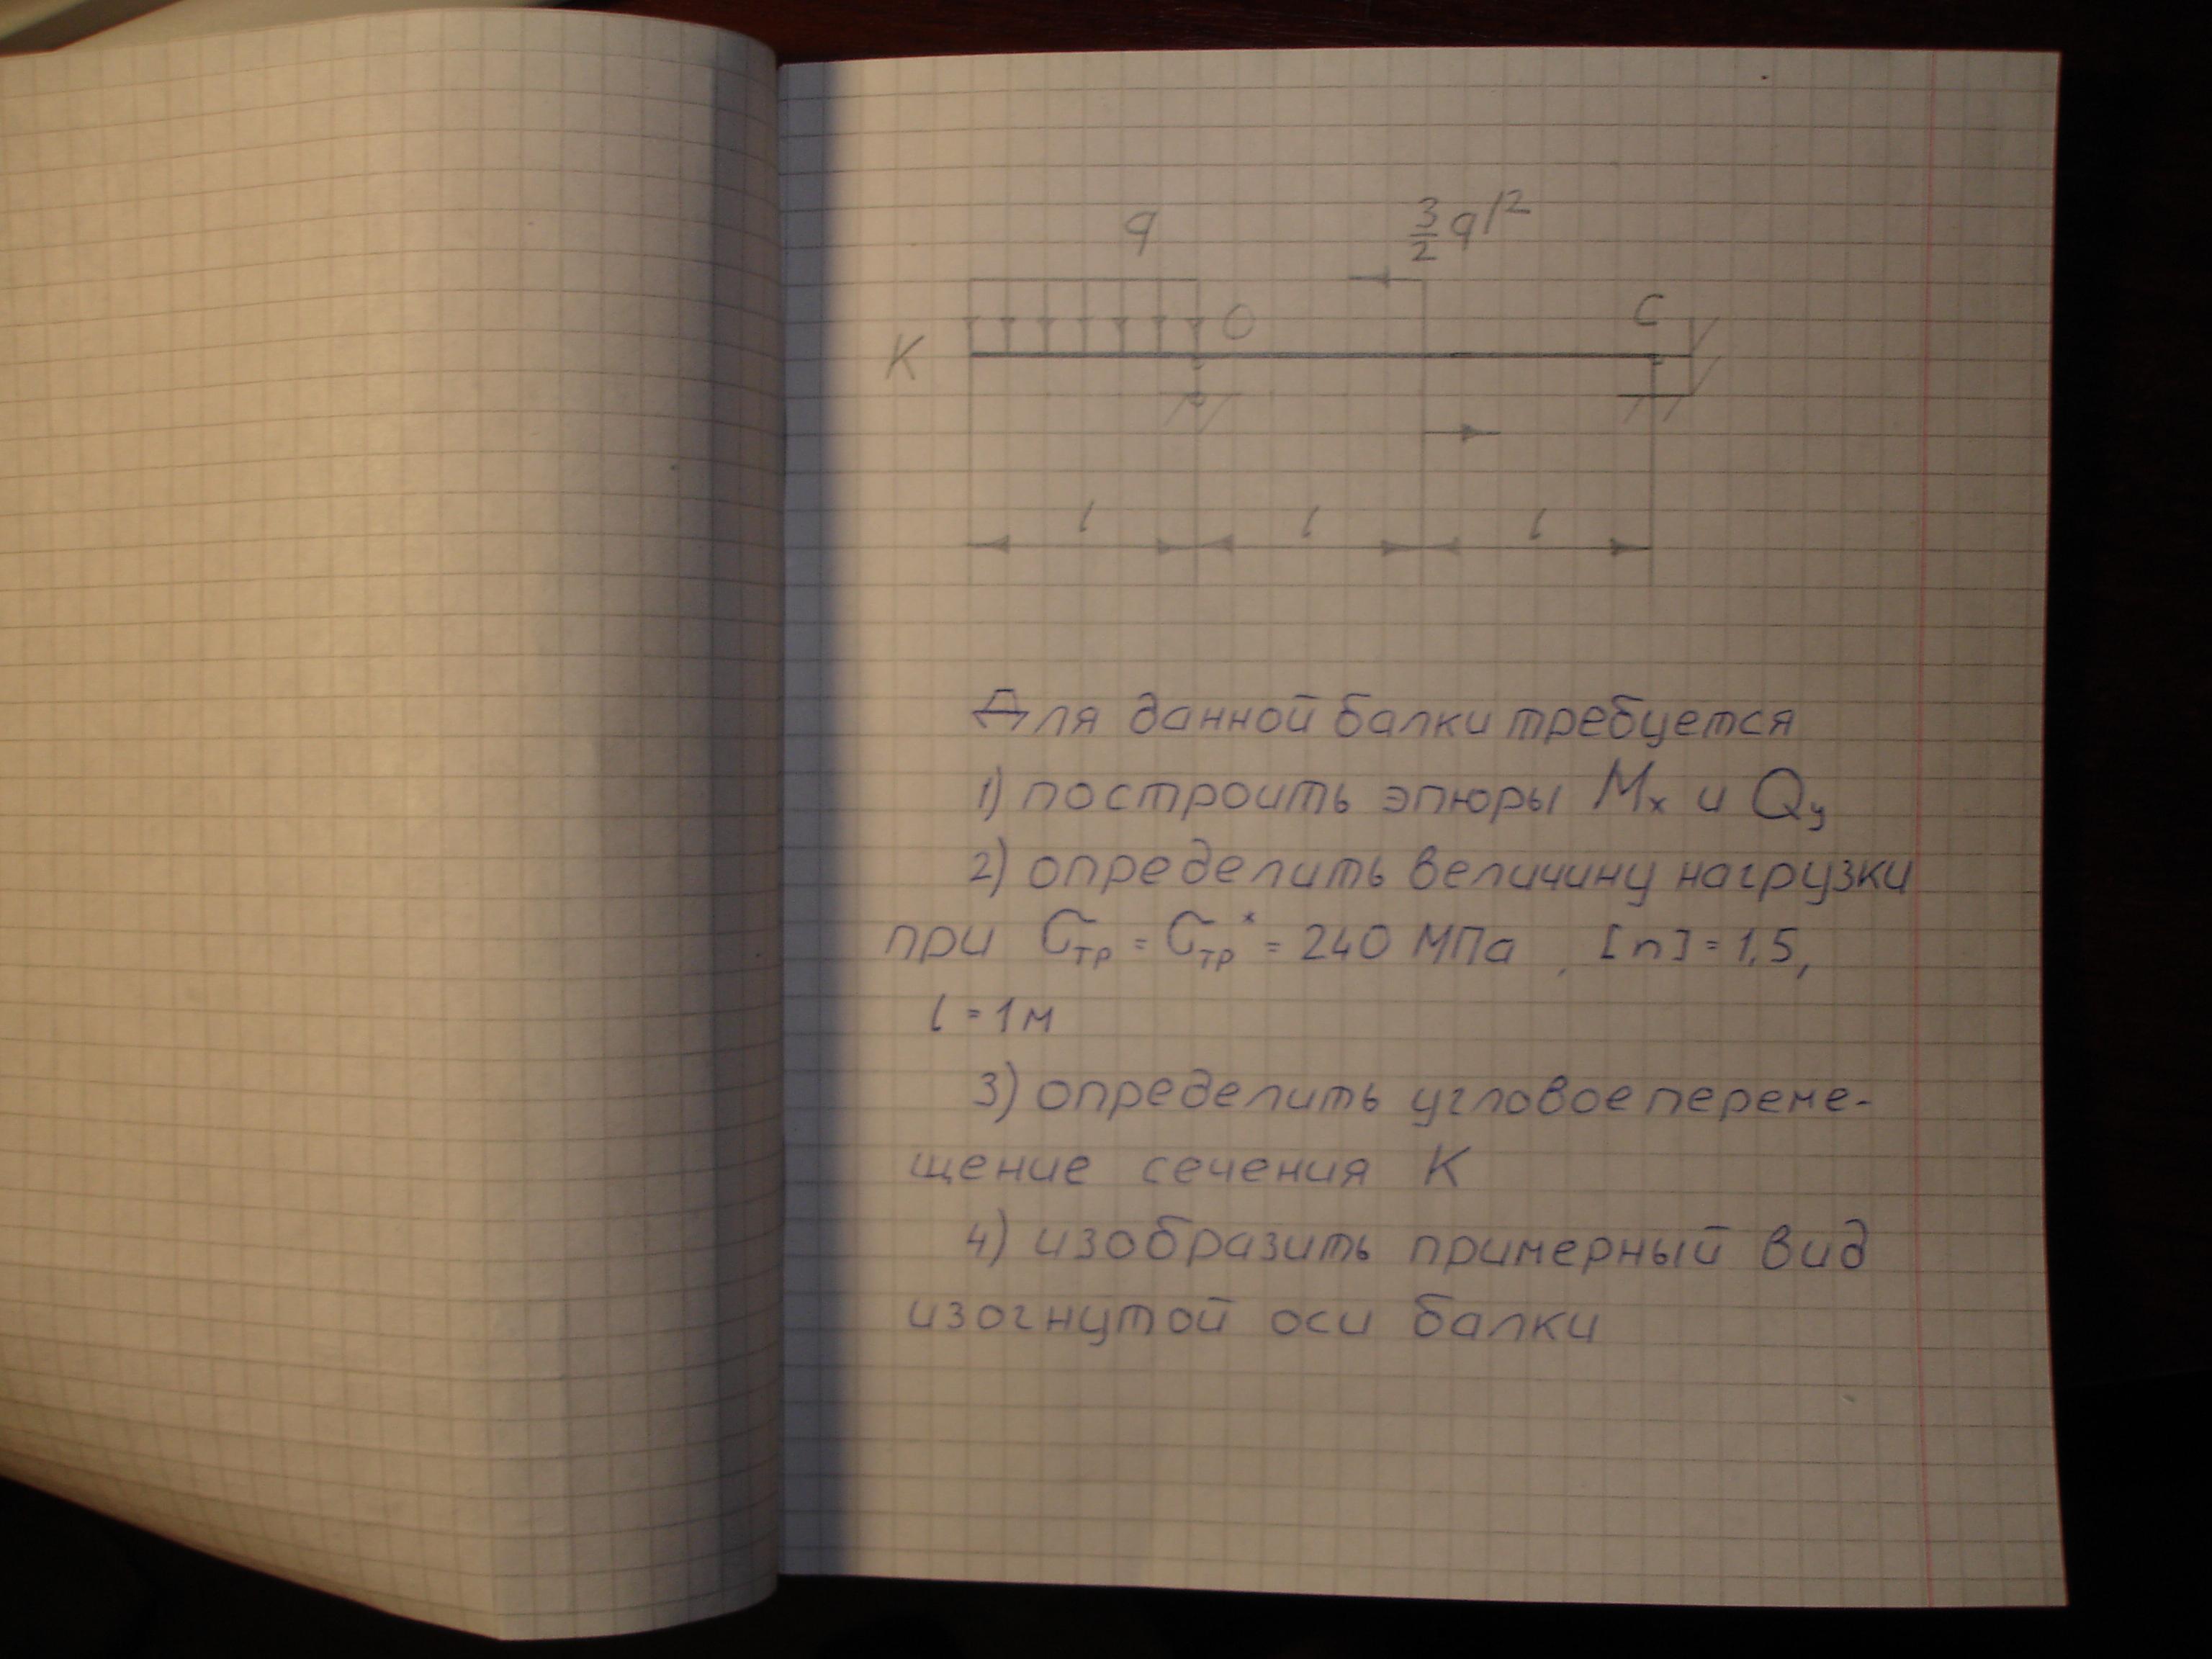 q
3/2 ql²
K
O
C
l l l
Для данной балки требуется
1) построить эпюры Mx и Qy
2) определить величину нагрузки
при σтр = σтр* = 240 МПа, [n] = 1,5,
l = 1 м
3) определить угловое переме-
щение сечения K
4) изобразить примерный вид
изогнутой оси балки